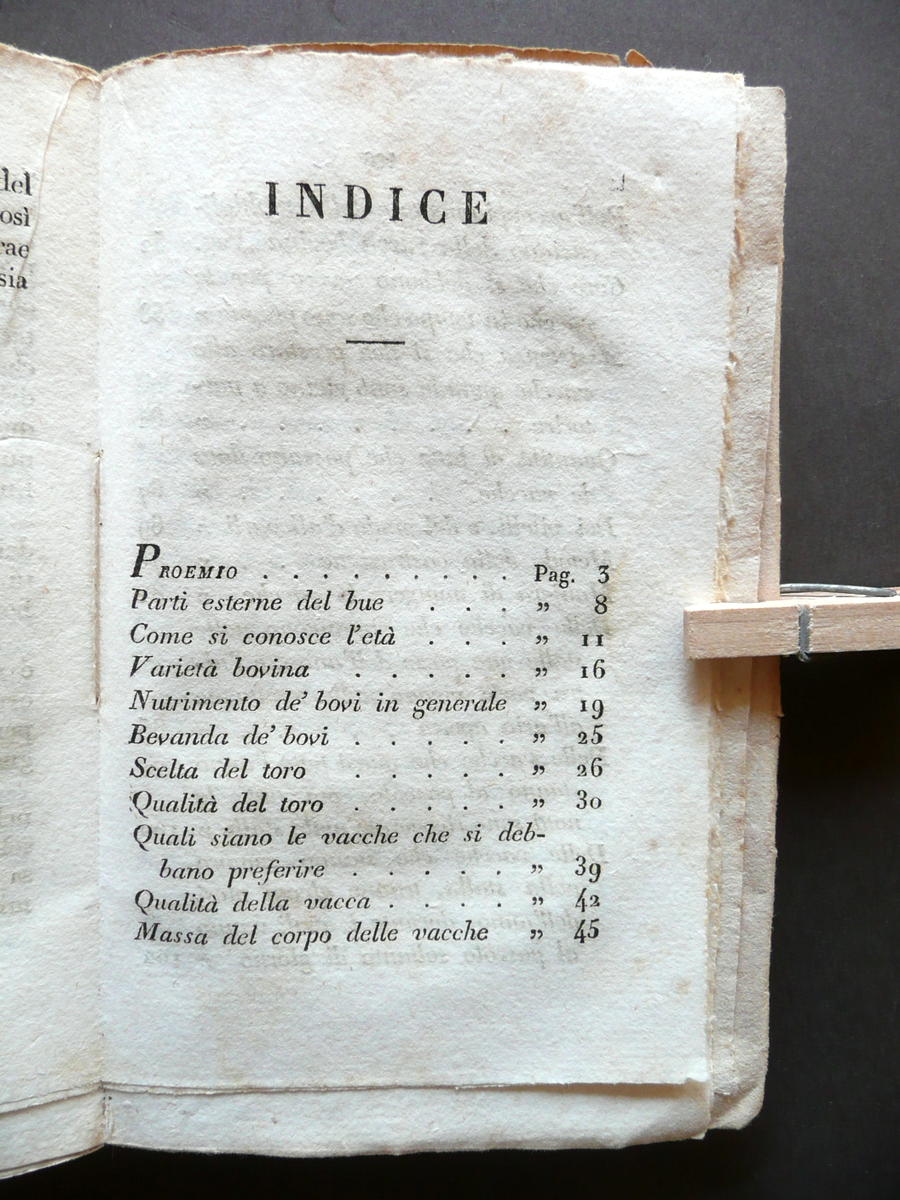 del
osì
rae
sia
INDICE
PROEMIO . . . . . . . . . Pag. 3
Parti esterne del bue . . . „ 8
Come si conosce l'età . . . „ 11
Varietà bovina . . . . . „ 16
Nutrimento de' bovi in generale „ 19
Bevanda de' bovi . . . . . „ 25
Scelta del toro . . . . . „ 26
Qualità del toro . . . . . „ 30
Quali siano le vacche che si deb-
bano preferire . . . . . „ 39
Qualità della vacca . . . . „ 42
Massa del corpo delle vacche „ 45